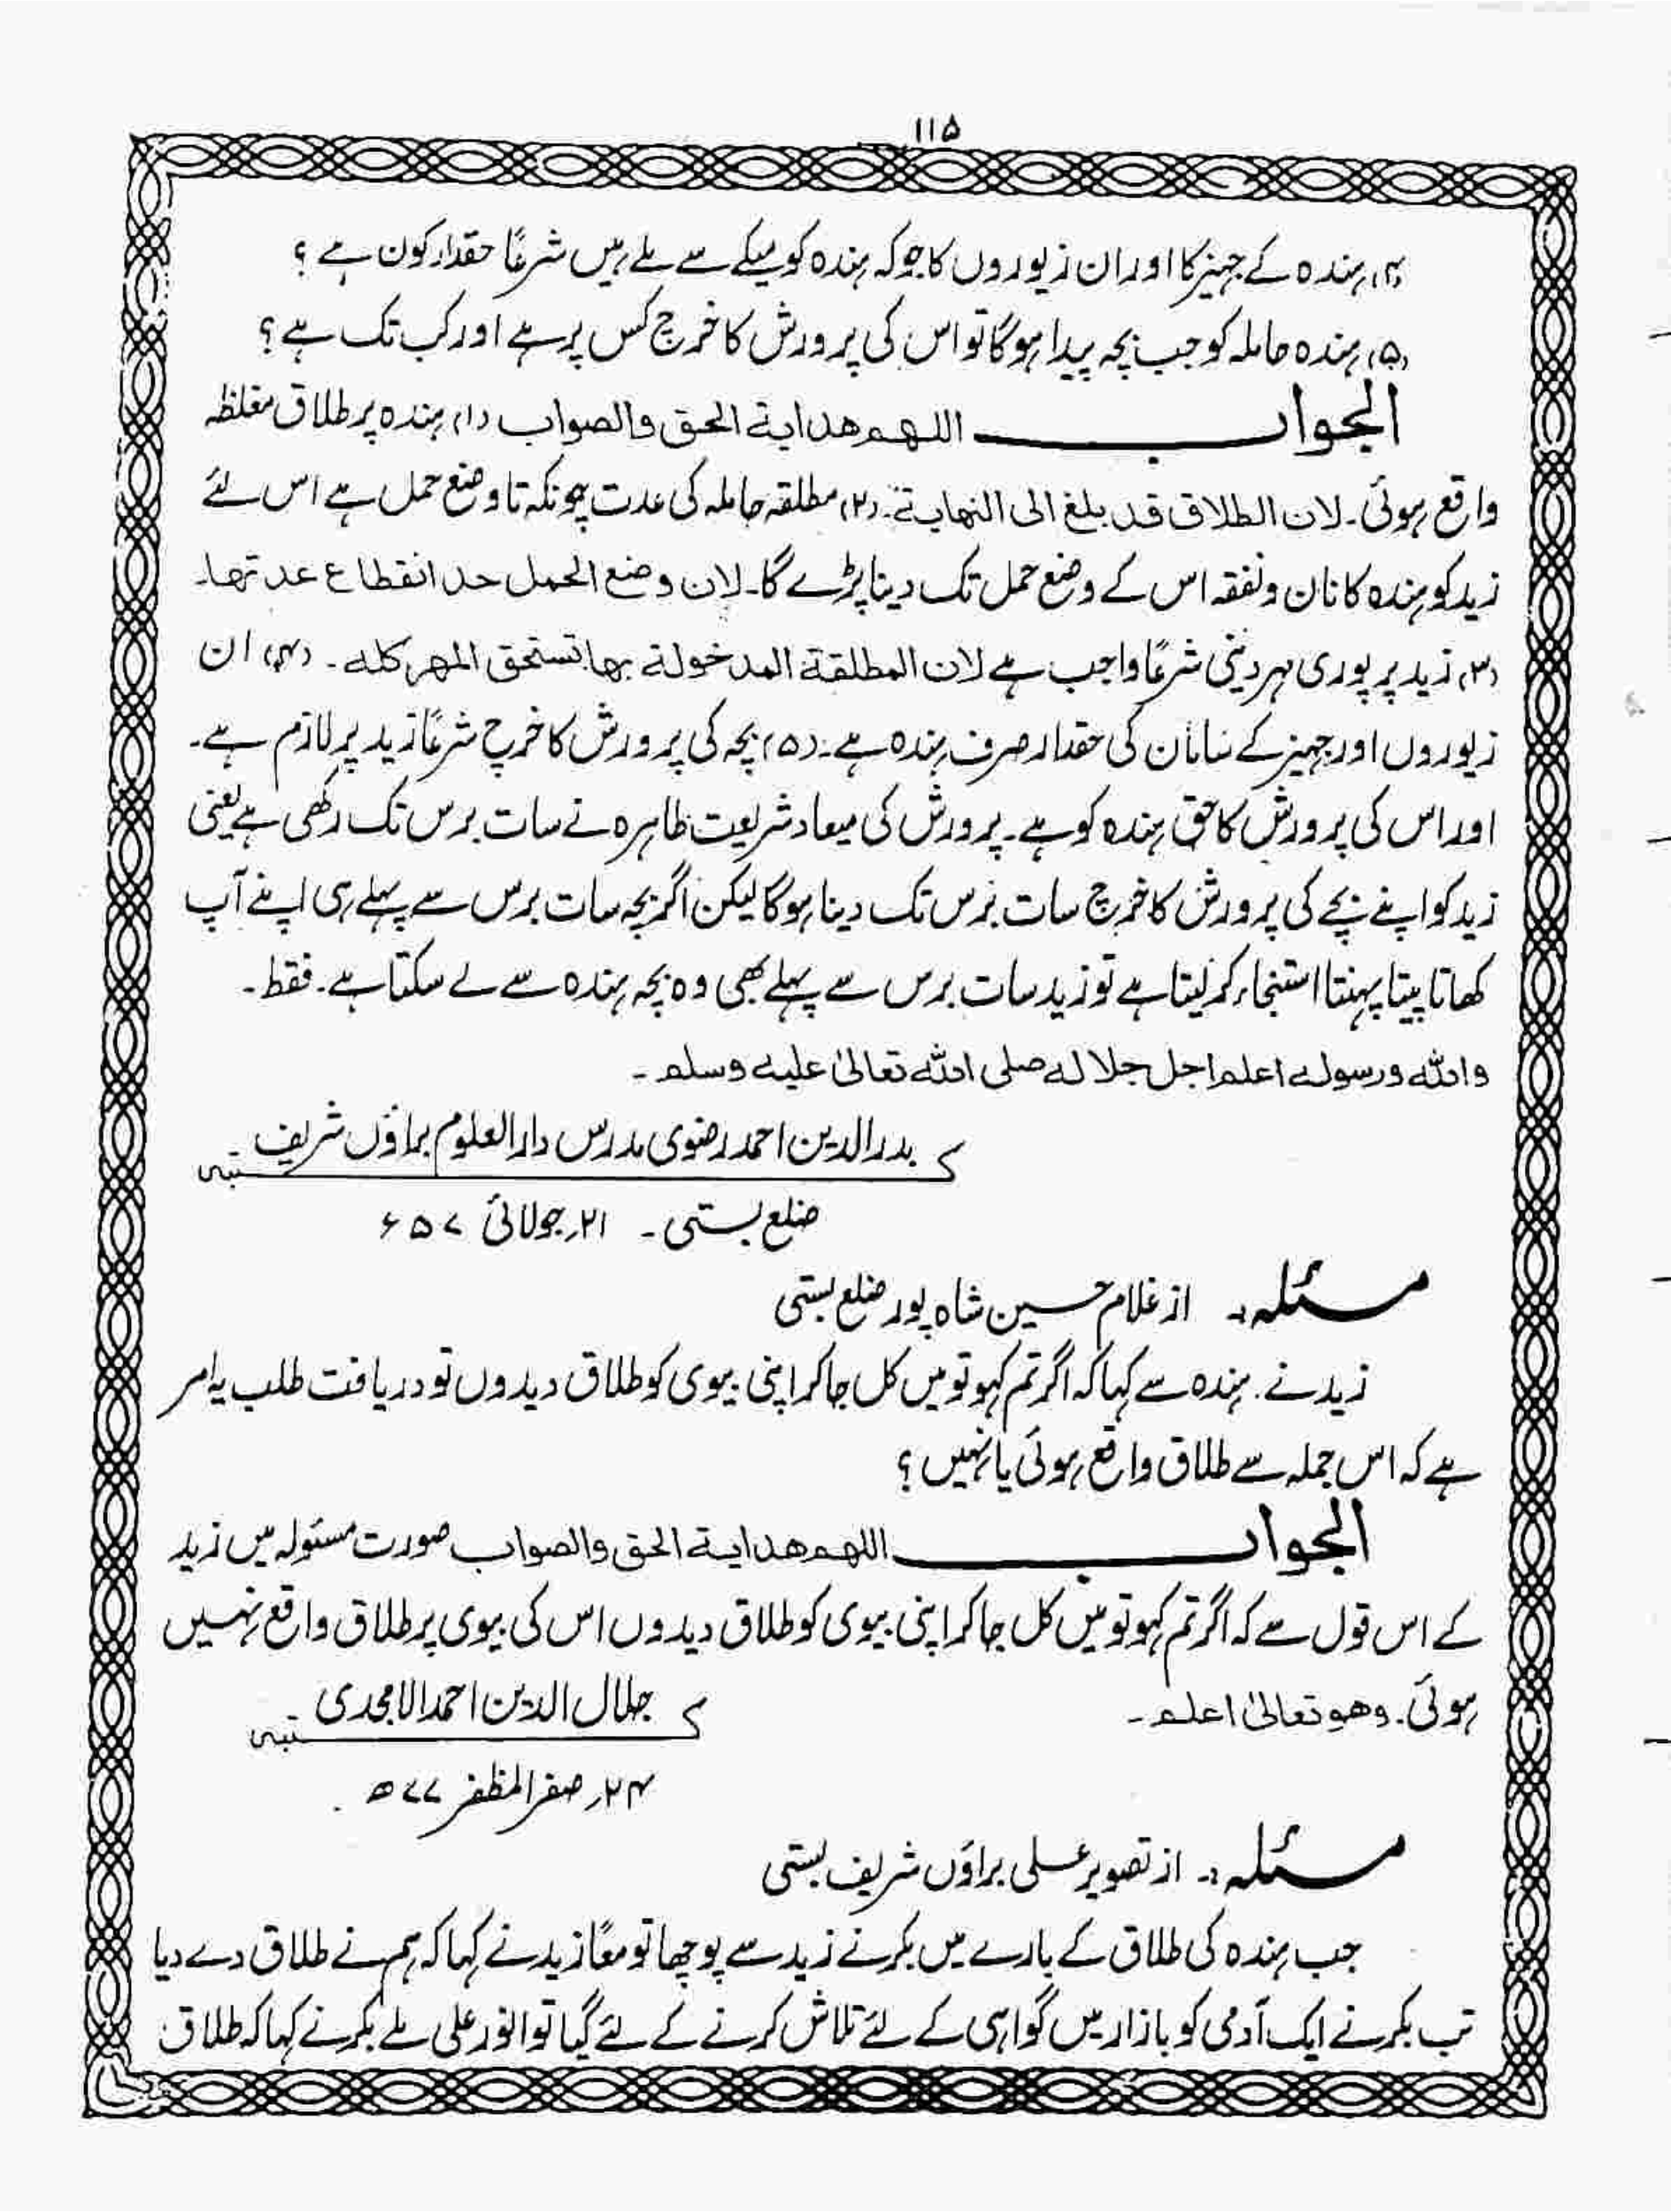 ۱۱۵
(۴) ہندہ کے جہیز کا اور ان زیوروں کا جو کہ ہندہ کو میکے سے ملے ہیں شرعًا حقدار کون ہے ؟
(۵) ہندہ حاملہ کو جب بچہ پیدا ہوگا تو اس کی پرورش کا خرچ کس پر ہے اور کب تک ہے ؟
الجواب اللہم ھدایۃ الحق والصواب (۱) ہندہ پر طلاق مغلظہ
واقع ہوئی۔ لان الطلاق قد بلغ الی النہایۃ۔ (۲) مطلقہ حاملہ کی عدت چونکہ تا وضع حمل ہے اس لئے
زید کو ہندہ کا نان ونفقہ اس کے وضع حمل تک دینا پڑے گا۔ لان وضع الحمل حد انقطاع عدتھا۔
(۳) زید پر پوری مہر دینی شرعًا واجب ہے لان المطلقۃ المدخولۃ بھا تستحق المھر کلہ ۔ (۴) ان
زیوروں اور جہیز کے سامان کی حقدار صرف ہندہ ہے۔ (۵) بچہ کی پرورش کا خرچ شرعًا زید پر لازم ہے۔
اور اس کی پرورش کا حق ہندہ کو ہے۔ پرورش کی میعاد شریعت طاہرہ نے سات برس تک رکھی ہے یعنی
زید کو اپنے بچے کی پرورش کا خرچ سات برس تک دینا ہوگا لیکن اگر بچہ سات برس سے پہلے ہی اپنے آپ
کھاتا پیتا پہنتا استنجاء کر لیتا ہے تو زید سات برس سے پہلے بھی وہ بچہ ہندہ سے لے سکتا ہے۔ فقط۔
واللہ ورسولہ اعلم اجل جلالہ صلی اللہ تعالیٰ علیہ وسلم ۔
کتبہ بدر الدین احمد رضوی مدرس دار العلوم براؤں شریف
ضلع بستی ۔ ۲۱؍ جولائی ۵۷ ء
مسئلہ :۔ از غلام حسین شاہ پور ضلع بستی
زید نے ہندہ سے کہا کہ اگر تم کہو تو میں کل جا کر اپنی بیوی کو طلاق دیدوں تو دریافت طلب یہ امر
ہے کہ اس جملہ سے طلاق واقع ہوئی یا نہیں ؟
الجواب اللہم ھدایۃ الحق والصواب صورت مسئولہ میں زید
کے اس قول سے کہ اگر تم کہو تو میں کل جا کر اپنی بیوی کو طلاق دیدوں اس کی بیوی پر طلاق واقع نہیں
ہوئی۔ وھو تعالیٰ اعلم ۔
کتبہ جلال الدین احمد الامجدی
۲۴؍ صفر المظفر ۷۷ ھ
مسئلہ :۔ از تصویر علی براؤں شریف بستی
جب ہندہ کی طلاق کے بارے میں بکر نے زید سے پوچھا تو معًا زید نے کہا کہ ہم نے طلاق دے دیا
تب بکر نے ایک آدمی کو بازار میں گواہی کے لئے تلاش کرنے کے لئے گیا تو انور علی ملے بکر نے کہا کہ طلاق